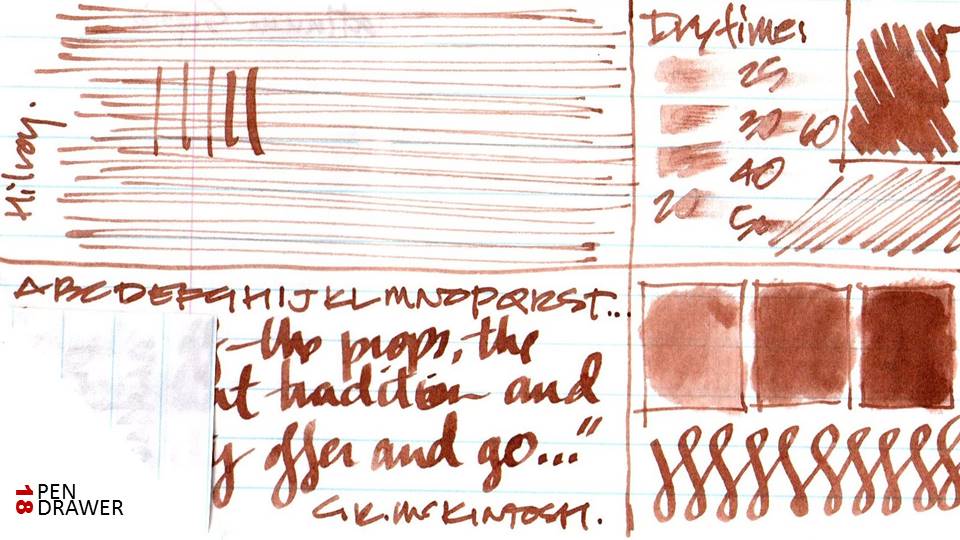 Hilroy.
Drytimes
25
30 60
40
20 50
ABCDEFGHIJKLMNOPQRST...
the props, the
tradition and
offer and go..."
G.K. McKINTOSH.
18 PEN
DRAWER